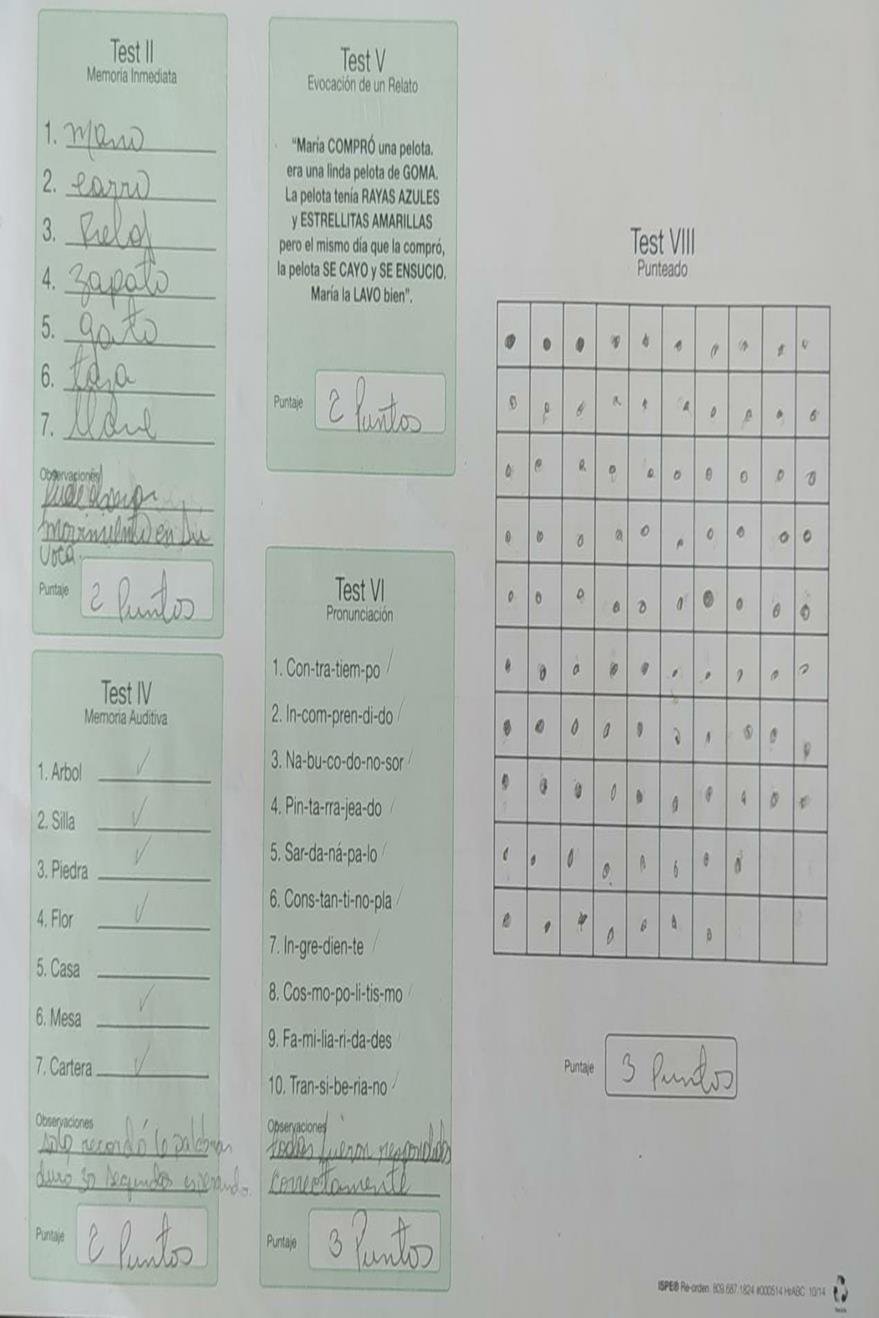 Test II
Memoria Inmediata
1. mano
2. carro
3. Reloj
4. zapato
5. gato
6. taza
7. llave
Observaciones
movimiento en su
voca.
Puntaje 2 Puntos
Test IV
Memoria Auditiva
1. Arbol ✓
2. Silla ✓
3. Piedra ✓
4. Flor ✓
5. Casa
6. Mesa ✓
7. Cartera ✓
Observaciones
solo recordó 6 palabras
duró 30 segundos esperando.
Puntaje 2 Puntos
Test V
Evocación de un Relato
"María COMPRÓ una pelota.
era una linda pelota de GOMA.
La pelota tenía RAYAS AZULES
y ESTRELLITAS AMARILLAS
pero el mismo día que la compró,
la pelota SE CAYO y SE ENSUCIO.
María la LAVO bien".
Puntaje 2 Puntos
Test VI
Pronunciación
1. Con-tra-tiem-po /
2. In-com-pren-di-do /
3. Na-bu-co-do-no-sor /
4. Pin-ta-rra-jea-do /
5. Sar-da-ná-pa-lo /
6. Cons-tan-ti-no-pla /
7. In-gre-dien-te /
8. Cos-mo-po-li-tis-mo /
9. Fa-mi-lia-ri-da-des /
10. Tran-si-be-ria-no /
Observaciones
todas fueron respondidas
correctamente
Puntaje 3 Puntos
Test VIII
Punteado
Puntaje 3 Puntos
ISPE® Re-orden. 809.687.1824 #000514 HrABC 10/14